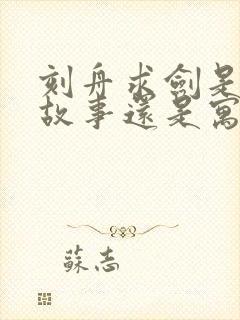 刻舟求劍是
故事還是寓
蘇志